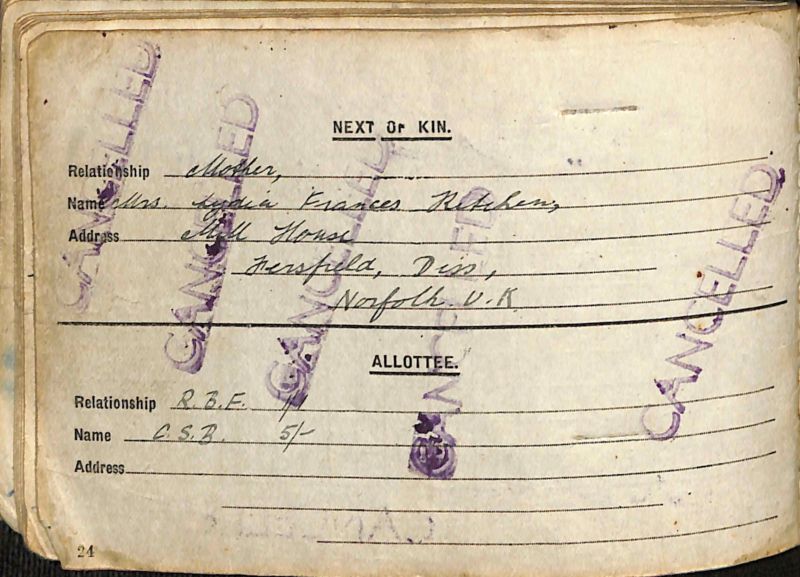 NEXT OF KIN.
Relationship Mother,
Name Mrs. Lydia Frances Ketchen,
Address Mill House
Fersfield, Diss,
Norfolk U.K
ALLOTTEE.
Relationship R.B.F. 1/
Name C.S.B. 5/-
Address
24
CANCELLED
CANCELLED
CANCELLED
CANCELLED
CANCELLED